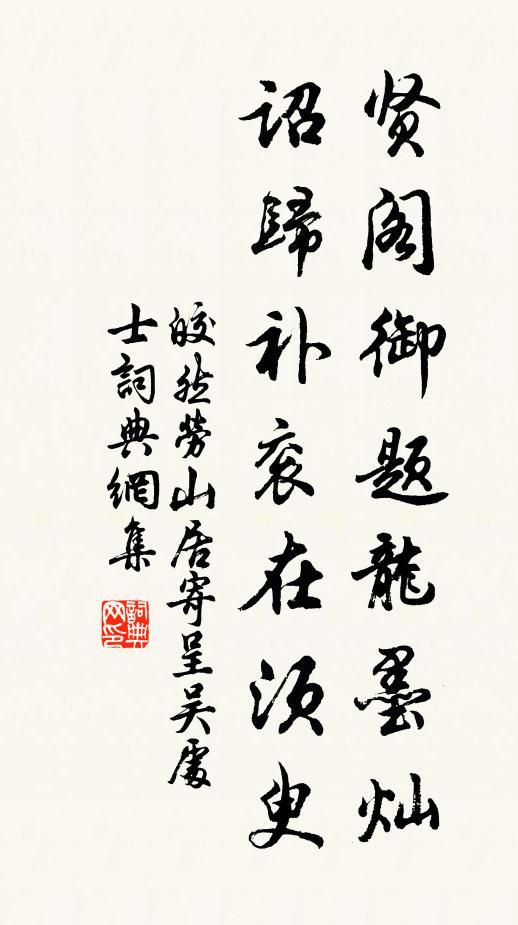 贤阁御题龙墨灿
诏歸补衮在须臾
皎然劳山居寄呈吴處
士詞典網集
詞典
网印